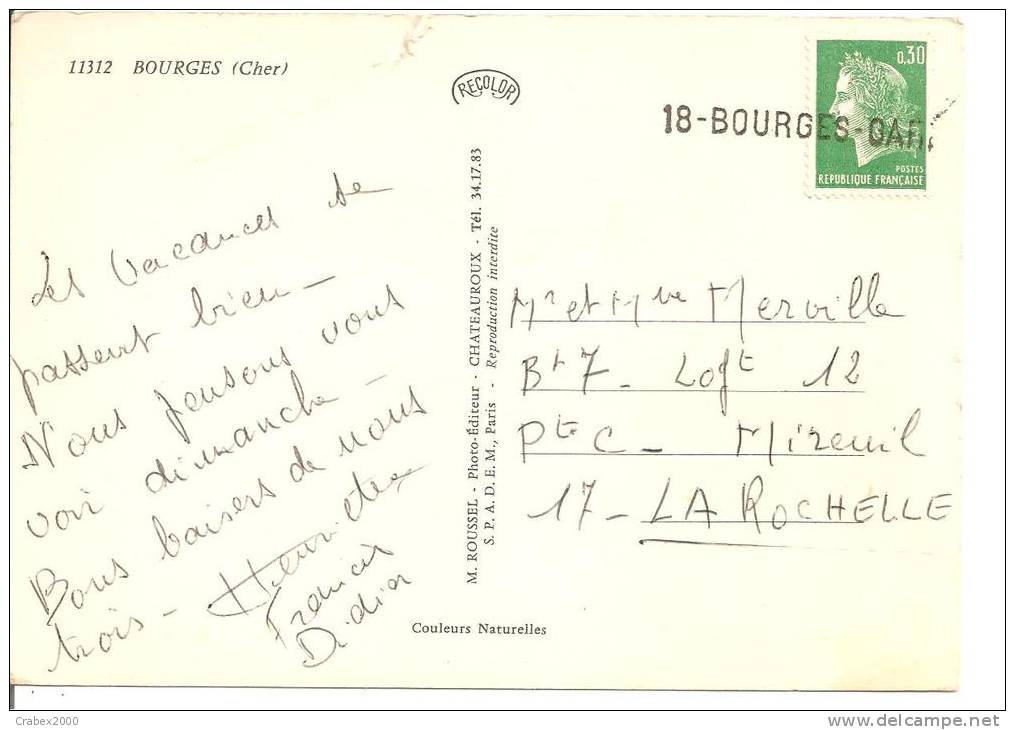 11312 BOURGES (Cher)
RECOLOR
0,30
18-BOURGES-GAR
POSTES
REPUBLIQUE FRANÇAISE
Les vacances se
passent bien -
Nous pensons vous
voir dimanche
Bons baisers de nous
trois - Henriette
Francis
Didier
M. ROUSSEL - Photo-Éditeur - CHATEAUROUX - Tél. 34.17.83
S. P. A. D. E. M., Paris - Reproduction interdite
Mr et Mme Merville
Bt 7 - Logt 12
Pte C - Mireuil
17 - LA ROCHELLE
Couleurs Naturelles
Crabex2000
delcampe.net